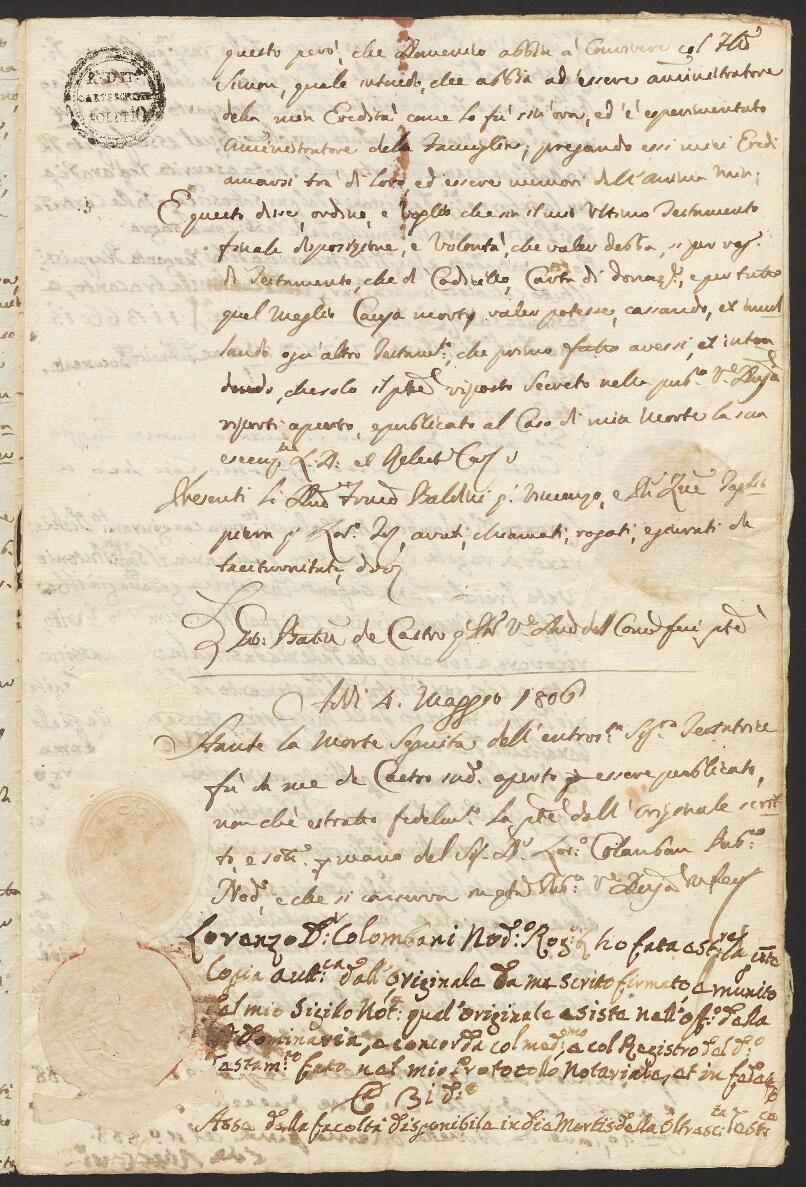 questo però, che Domenico abbia a Convivere col Sig.r
Simon, quale intendo, che abbia ad essere amministratore
della mia Eredità come lo fù sin'ora, ed è esperimentato
Amministratore della Famiglia; pregando essi miei Eredi
amarsi trà di loro, ed essere memori dell'anima mia;
E questo disse, ordinò, e voglio che sia il mio Ultimo Testamento
finale disposizione, e Volontà, che valer debba, si per rag.
di Testamento, che di Codicillo, Carta di donaz.e, e per tutto
quel meglio Causa mortis valer potesse, cassando, et annul
lando ogn'altro Testam.to, che primo fatto avessi, et inten
dendo, che solo il riposto Secreto nella pub.a
riporti aperto, e publicato al Caso di mia Morte la sua
essecuz.ne L. D. et
Presenti li Baldini q. Vincenzo, e Taglia
piera q. Lor.o Tes., avuti, chiamati, rogati, e giurati di
taciturnità,
Zio: Batta de Castro
Addi 4. Maggio 1806
Stante la Morte seguita dell'entros.ta Sig.ra Testatrice
fù da me de Castro sud.o aperto p essere publicato,
non chè estratto fedelm.te la dall'Originale scrit
to, e sott.o p mano del Sig. D.r Lor.o Colomban Pub.co
Nod.o e che si conserva in
Lorenzo D.r Colombani Nod.o Rog.o ho fata estrar la
Copia aut.ca dall'originale da me scrito firmato, e munito
dal mio Sigilo Not.: qual'originale esiste nell'off.o della
e concorda col med.mo, e col Registro del d.o
Testam.to fato nel mio Protocollo Notariale, et in fede
Asse dalla facoltà disponibile in die Mortis della Oltrasc.ta